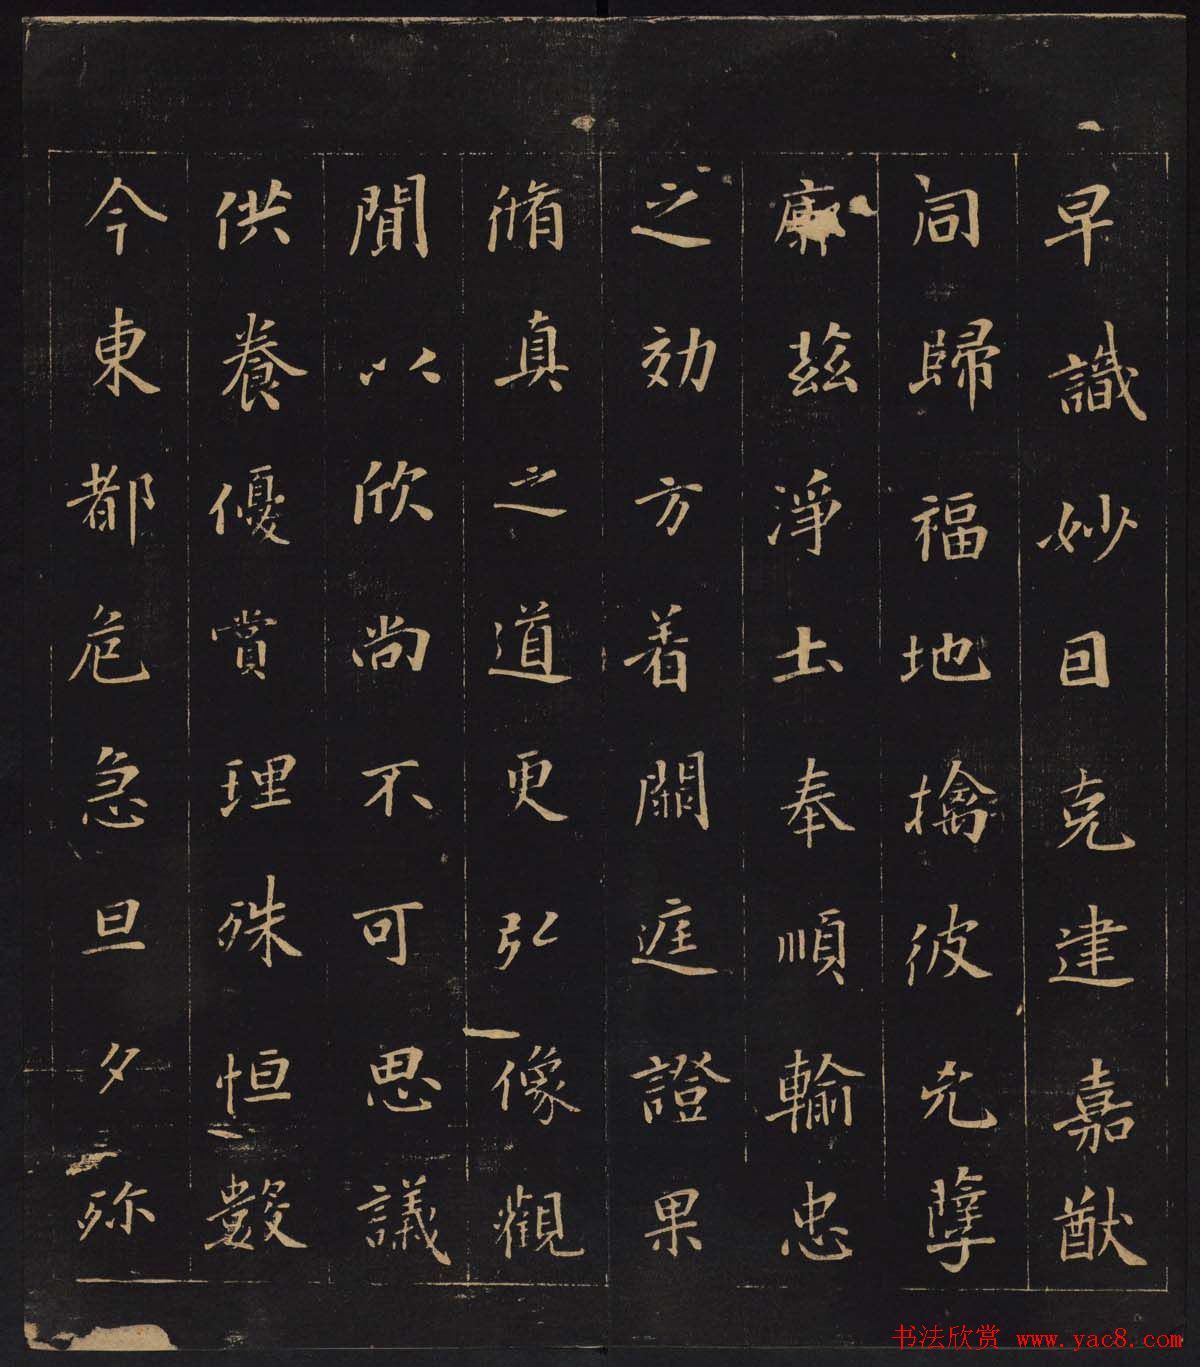 早識妙因克建嘉猷
同歸福地擒彼兇孽
廓兹淨土奉順輸忠
之効方著闕庭證果
脩真之道更弘像觀
聞以欣尚不可思議
供養優賞理殊恒數
今東都危急旦夕殄
书法欣赏 www.yac8.com